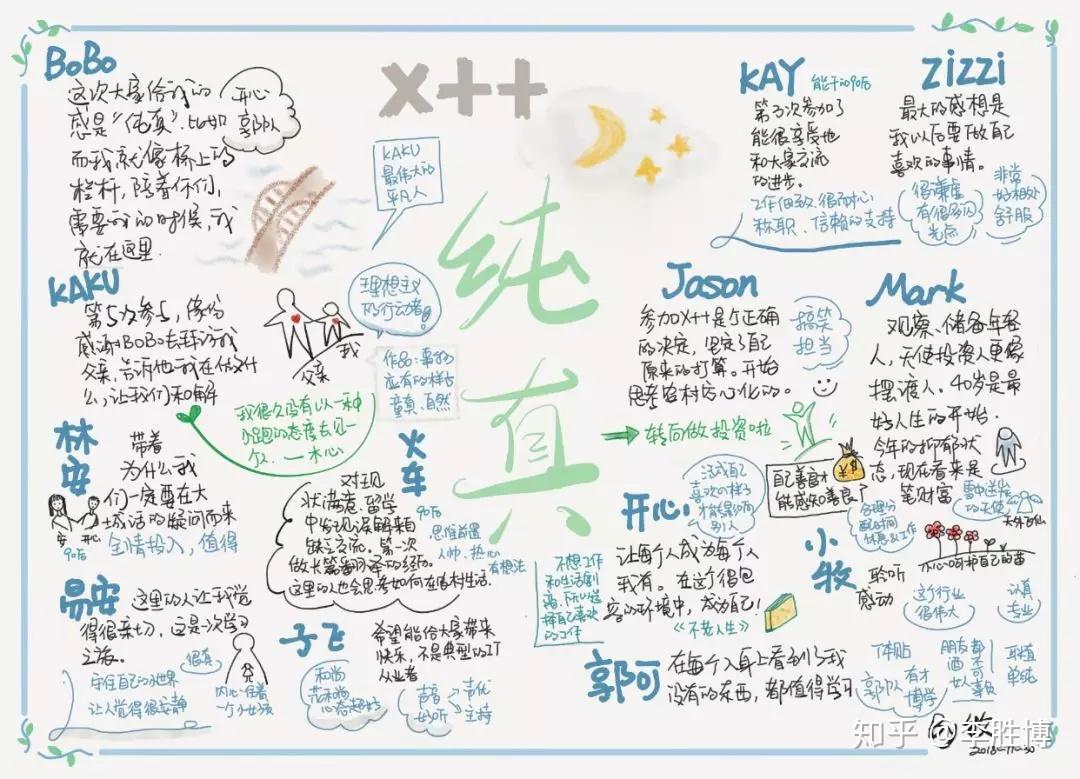 BoBo
这次大家给我的
感是“纯真”.比如
而我就像桥上的
栏杆,陪着你们,
需要我的时候,我
就在这里.
开心
郭队
X++
KAKU
最伟大的
平凡人
纯真
KAY 能干的90后
第3次参加了
能很享受地
和大家交流
的进步。
工作细致.很耐心
称职、信赖的支持
ZIZZI
最大的感想是
我以后要做自己
喜欢的事情。
很谦虚
有很多闪
光点
非常
好相处
舒服
KAKU
第5次参与,缘份
感谢BOBO去拜访我
父亲,告诉他我在做什
么,让我们和解
理想主义
的行动者!
我
父亲
作品:事物
应有的样子
童真、自然
我很久没有以一种
小跑的态度去见一
个人.——木心
Jason
参加X++是个正确
的决定,坚定了自己
原来的打算。开始
思考农村去心化的。
搞笑
担当
转向做投资啦
Mark
观察、储备年轻
人,天使投资人更像
摆渡人。40岁是最
好人生的开始.
今年的抑郁状
态,现在看来是
笔财富
雪中送炭
的天使
林安
带着
为什么我
们一定要在大
城活的疑问而来
全情投入,值得
安 开心
90后
火车
90后
对呈现
状满意、留学
中发现误解来自
缺乏交流。第一次
做长篇翻译的经历。
这里的人也会思考如何在农村生活.
思维前置
人帅、热心
有想法
开心
活成自己
喜欢的样子
才能影响
别人
自己善良才
能感知善良
让每个人成为每个人
我有。在这个很包
容的环境中,成为自己!
《不老人生》
不想工作
和生活割
离,所以选
择自己喜欢
的工作
小牧
聆听
感动
合理分
配时间
休息&工作
天外飞仙
小心呵护自己的苗
这行业
很伟大
认真
专业
易安
这里的人让我觉
得很亲切,这是一次学习
之旅。
很真
守住自己的小世界
让人觉得很安静
内心住着
一个小女孩
子飞
希望能给大家带来
快乐,不是典型的IT
从业者
和尚
花和尚
心态超好
声音
好听
声优
主持
郭可
在每个人身上看到了我
没有的东西,都值得学习
体贴
郭队 有才
博学
朋友都
洒不可
女人事女
耿植
单纯
2018-11-30
知乎 @李胜博